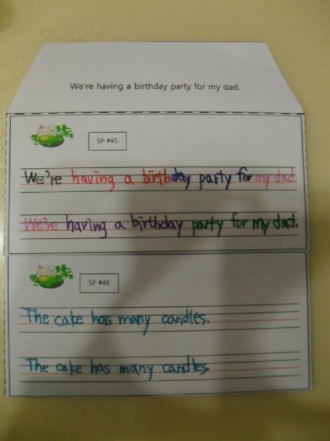 We're having a birthday party for my dad.
SP #45
We're having a birthday party for my dad.
We're having a birthday party for my dad.
SP #46
The cake has many candles.
The cake has many candles.